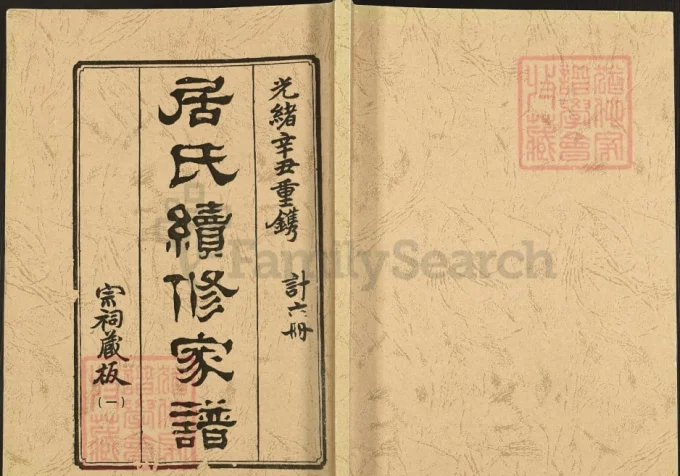 光緒辛丑重鐫　計六冊
居氏續修家譜
宗祠藏板
(一)
FamilySearch